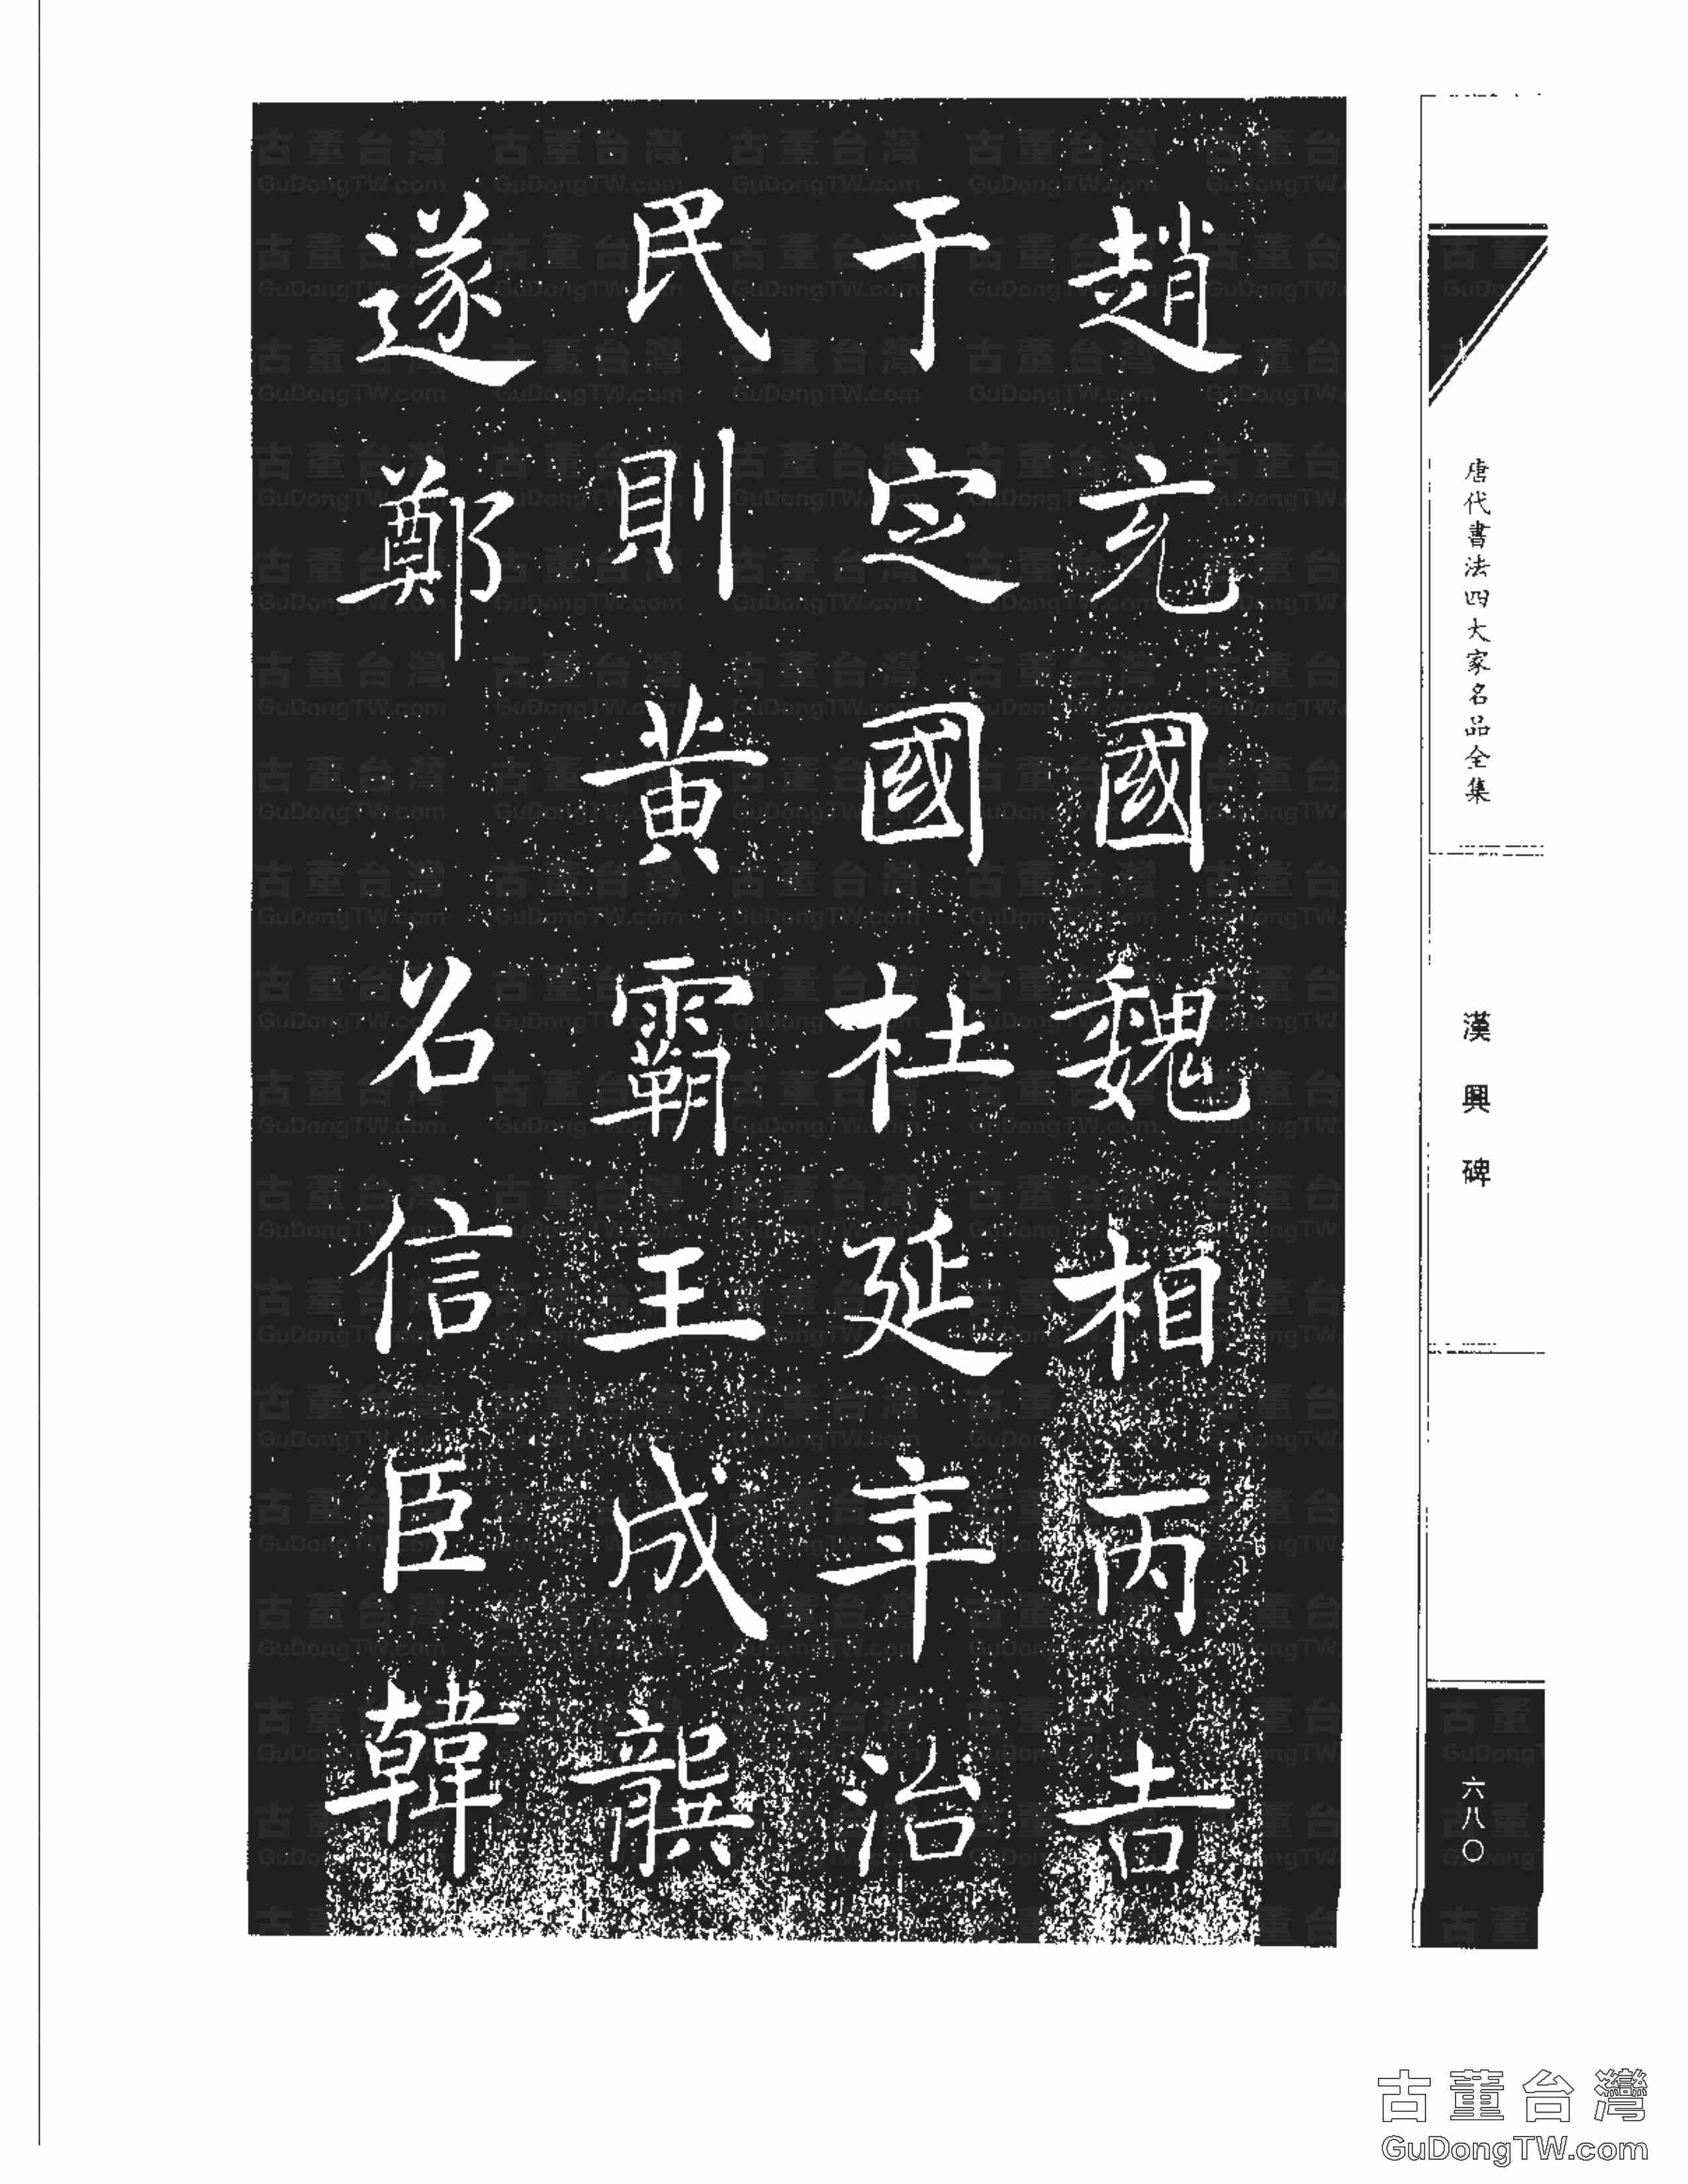 唐代書法四大家名品全集
漢興碑
六八〇
趙充國魏相丙吉
于定國杜延年治
民則黄霸王成龔
遂鄭 召信臣韓
古董台灣
GuDongTW.com